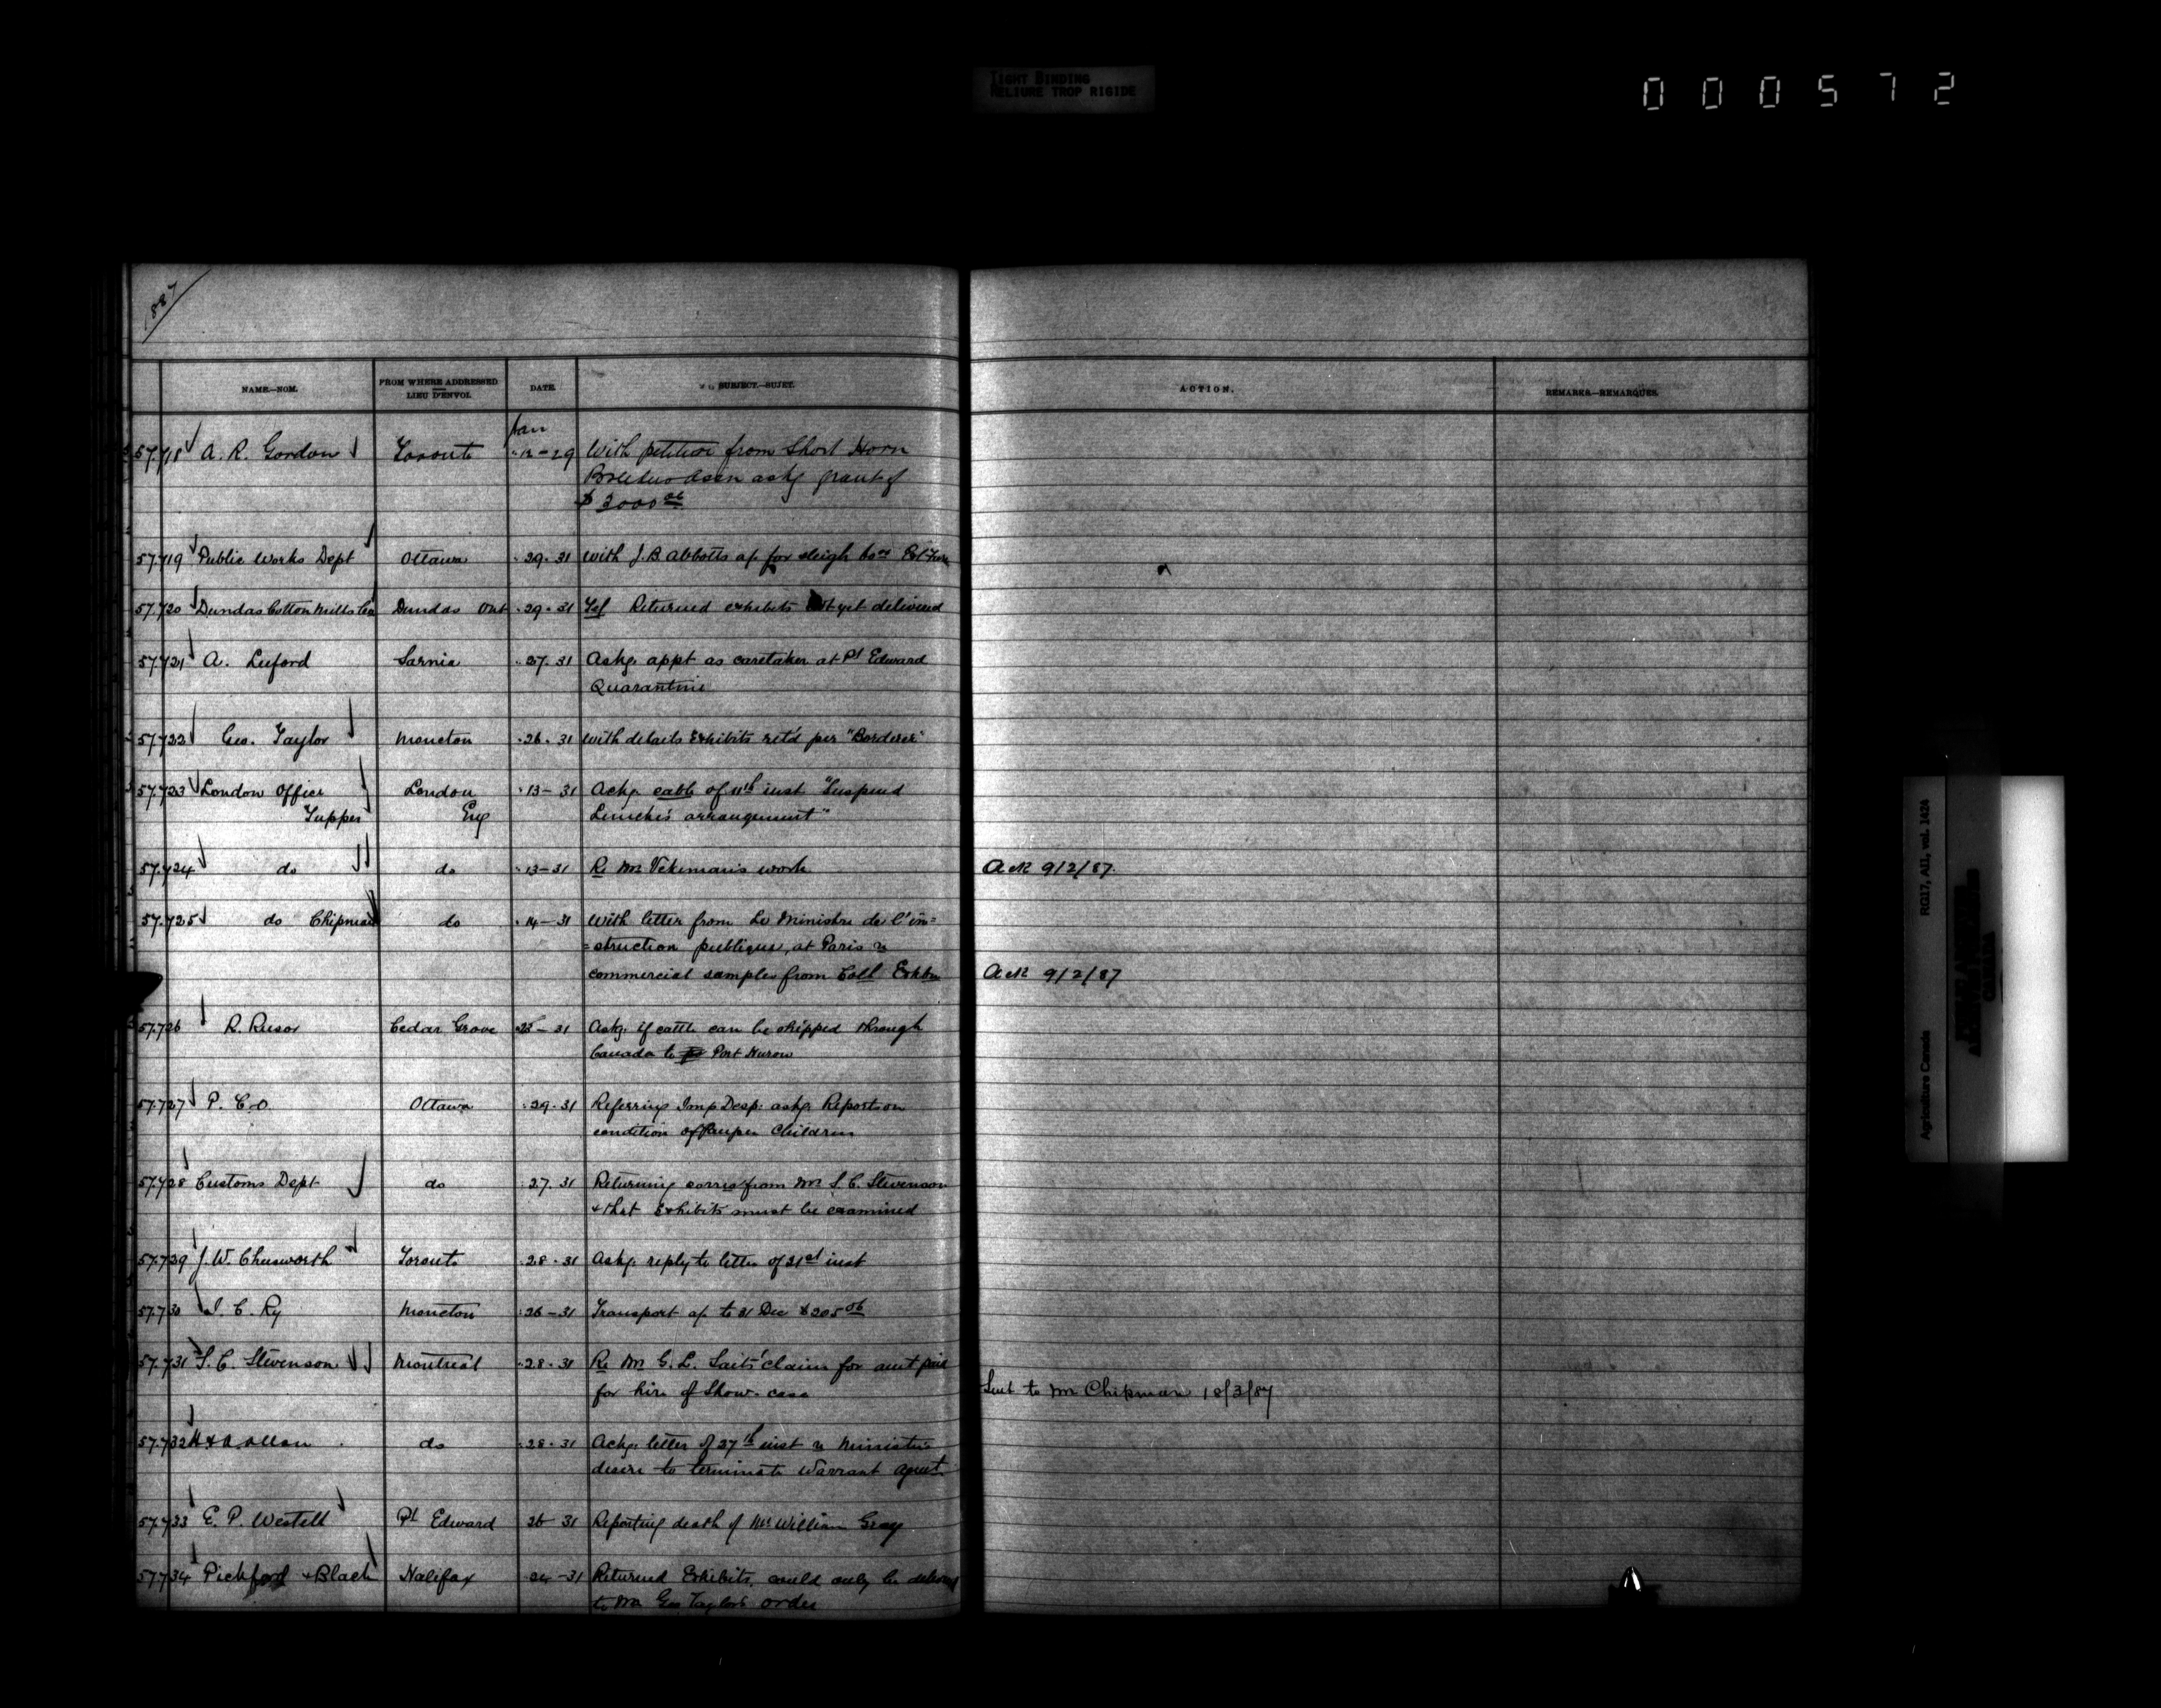 TIGHT BINDING
RELIURE TROP RIGIDE
000572
1887
NAME.—NOM. FROM WHERE ADDRESSED LIEU D'ENVOI. DATE. SUBJECT.—SUJET. ACTION. REMARKS.—REMARQUES.
Jan
57.718 A. R. Gordon Toronto 12-29 With petition from Short Horn
Breeders assn askg grant of
57.719 Public Works Dept Ottawa 29.31 with J. B Abbotts a/c for sleigh
57.720 Dundas Cotton Mills Dundas Ont 29.31 Returned exhibits not yet delivered
57.721 A. Luford Sarnia 27.31 Askg. appt as caretaker at Pt Edward
Quarantine
57.722 Geo. Taylor Moncton 26.31 with details Exhibits retd per "Borderer"
57.723 London Office London 13-31 Ackg. cable of 11th inst "Suspend
Tupper Eng arrangement"
57.724 do do 13-31 Re Mr work Ack 9/2/87.
57.725 do Chipman do 14-31 With letter from Le Ministre de l'in=
=struction publique, at Paris re
commercial samples from Coll Exhbn Ack 9/2/87
57.726 R. Reesor Cedar Grove 25-31 Askg. if cattle can be shipped through
Canada to Port Huron
57.727 P. C. O. Ottawa 29.31 Referring Imp Desp: askg. Report on
condition of Pauper Children
57.728 Customs Dept do 27.31 Returning corres from Mr S. C. Stevenson
& that Exhibits must be examined
57.729 J. W. Toronto 28.31 Askg. reply to letter of 21st inst
57.730 I. C. Ry Moncton 26-31 Transport a/c to 31 Dec $205 06
57.731 S. C. Stevenson Montreal 28.31 Re Mr G. L. claim for amt paid
for hire of Show-case Sent to Mr Chipman 18/3/87
57.732 H & A Allan do 28.31 Ackg. letter of 27th inst re Minister's
desire to terminate Warrant agmt.
57.733 E. P. Westell Pt Edward 26 31 Reporting death of Mr William Gray
57.734 Pickford & Black Halifax 24-31 Returned Exhibits, could only be
to Mr Geo Taylor's order
Agriculture Canada RG17, AII, vol. 1424
PUBLIC ARCHIVES
CANADA